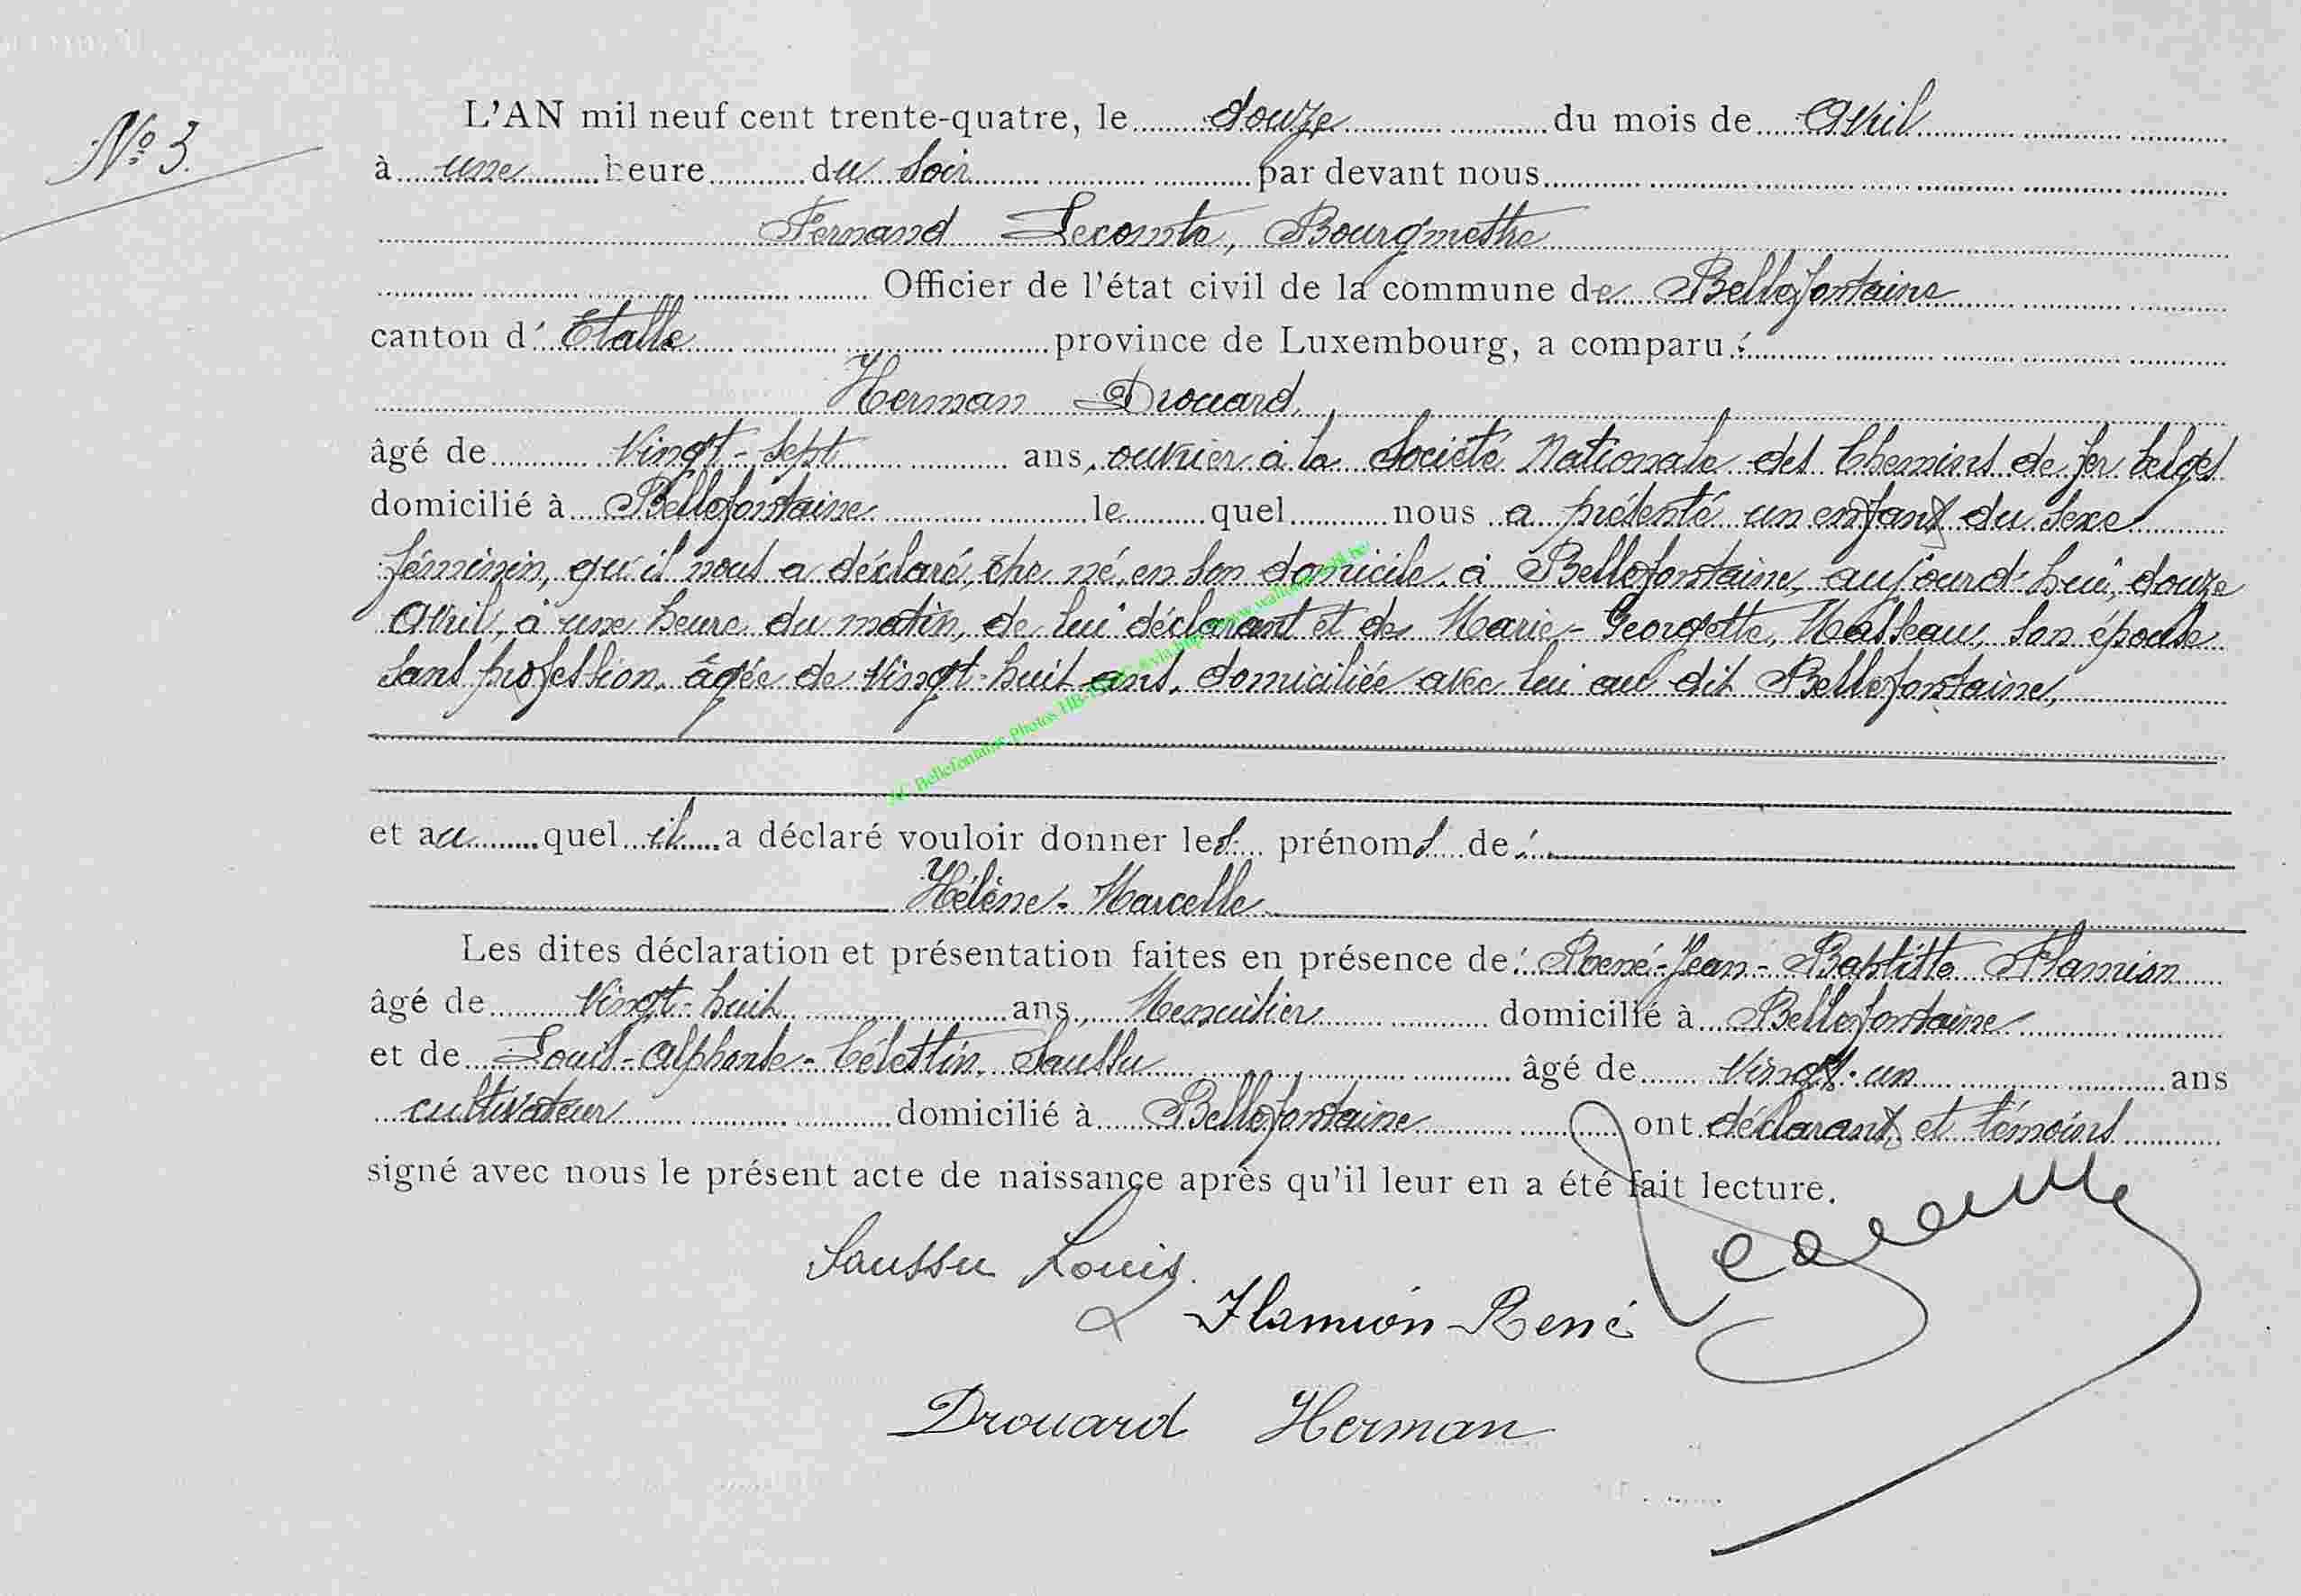 N° 3.
L'AN mil neuf cent trente-quatre, le douze du mois de Avril
à une heure du soir par devant nous
Fernand Lecomte, Bourgmestre
Officier de l'état civil de la commune de Bellefontaine
canton d' Etalle province de Luxembourg, a comparu :
Herman Drouard,
âgé de Vingt-sept ans, ouvrier à la Société Nationale des Chemins de fer belges
domicilié à Bellefontaine le quel nous a présenté un enfant du sexe
féminin, qu'il nous a déclaré, être né, en son domicile, à Bellefontaine, aujourd'hui, douze
Avril, à une heure du matin, de lui déclarant et de Marie-Georgette, Masseau, son épouse
sans profession, âgée de vingt-huit ans, domiciliée avec lui au dit Bellefontaine,
et au quel il a déclaré vouloir donner les prénoms de :
Hélène-Marcelle
Les dites déclaration et présentation faites en présence de : René-Jean-Baptiste Flamion
âgé de Vingt-huit ans, Menuisier domicilié à Bellefontaine
et de Louis-Alphonse-Célestin, Saussu âgé de Vingt-un ans
cultivateur domicilié à Bellefontaine ont déclarant et témoins
signé avec nous le présent acte de naissance après qu'il leur en a été fait lecture.
Saussu Louis.
Flamion René
Drouard Herman